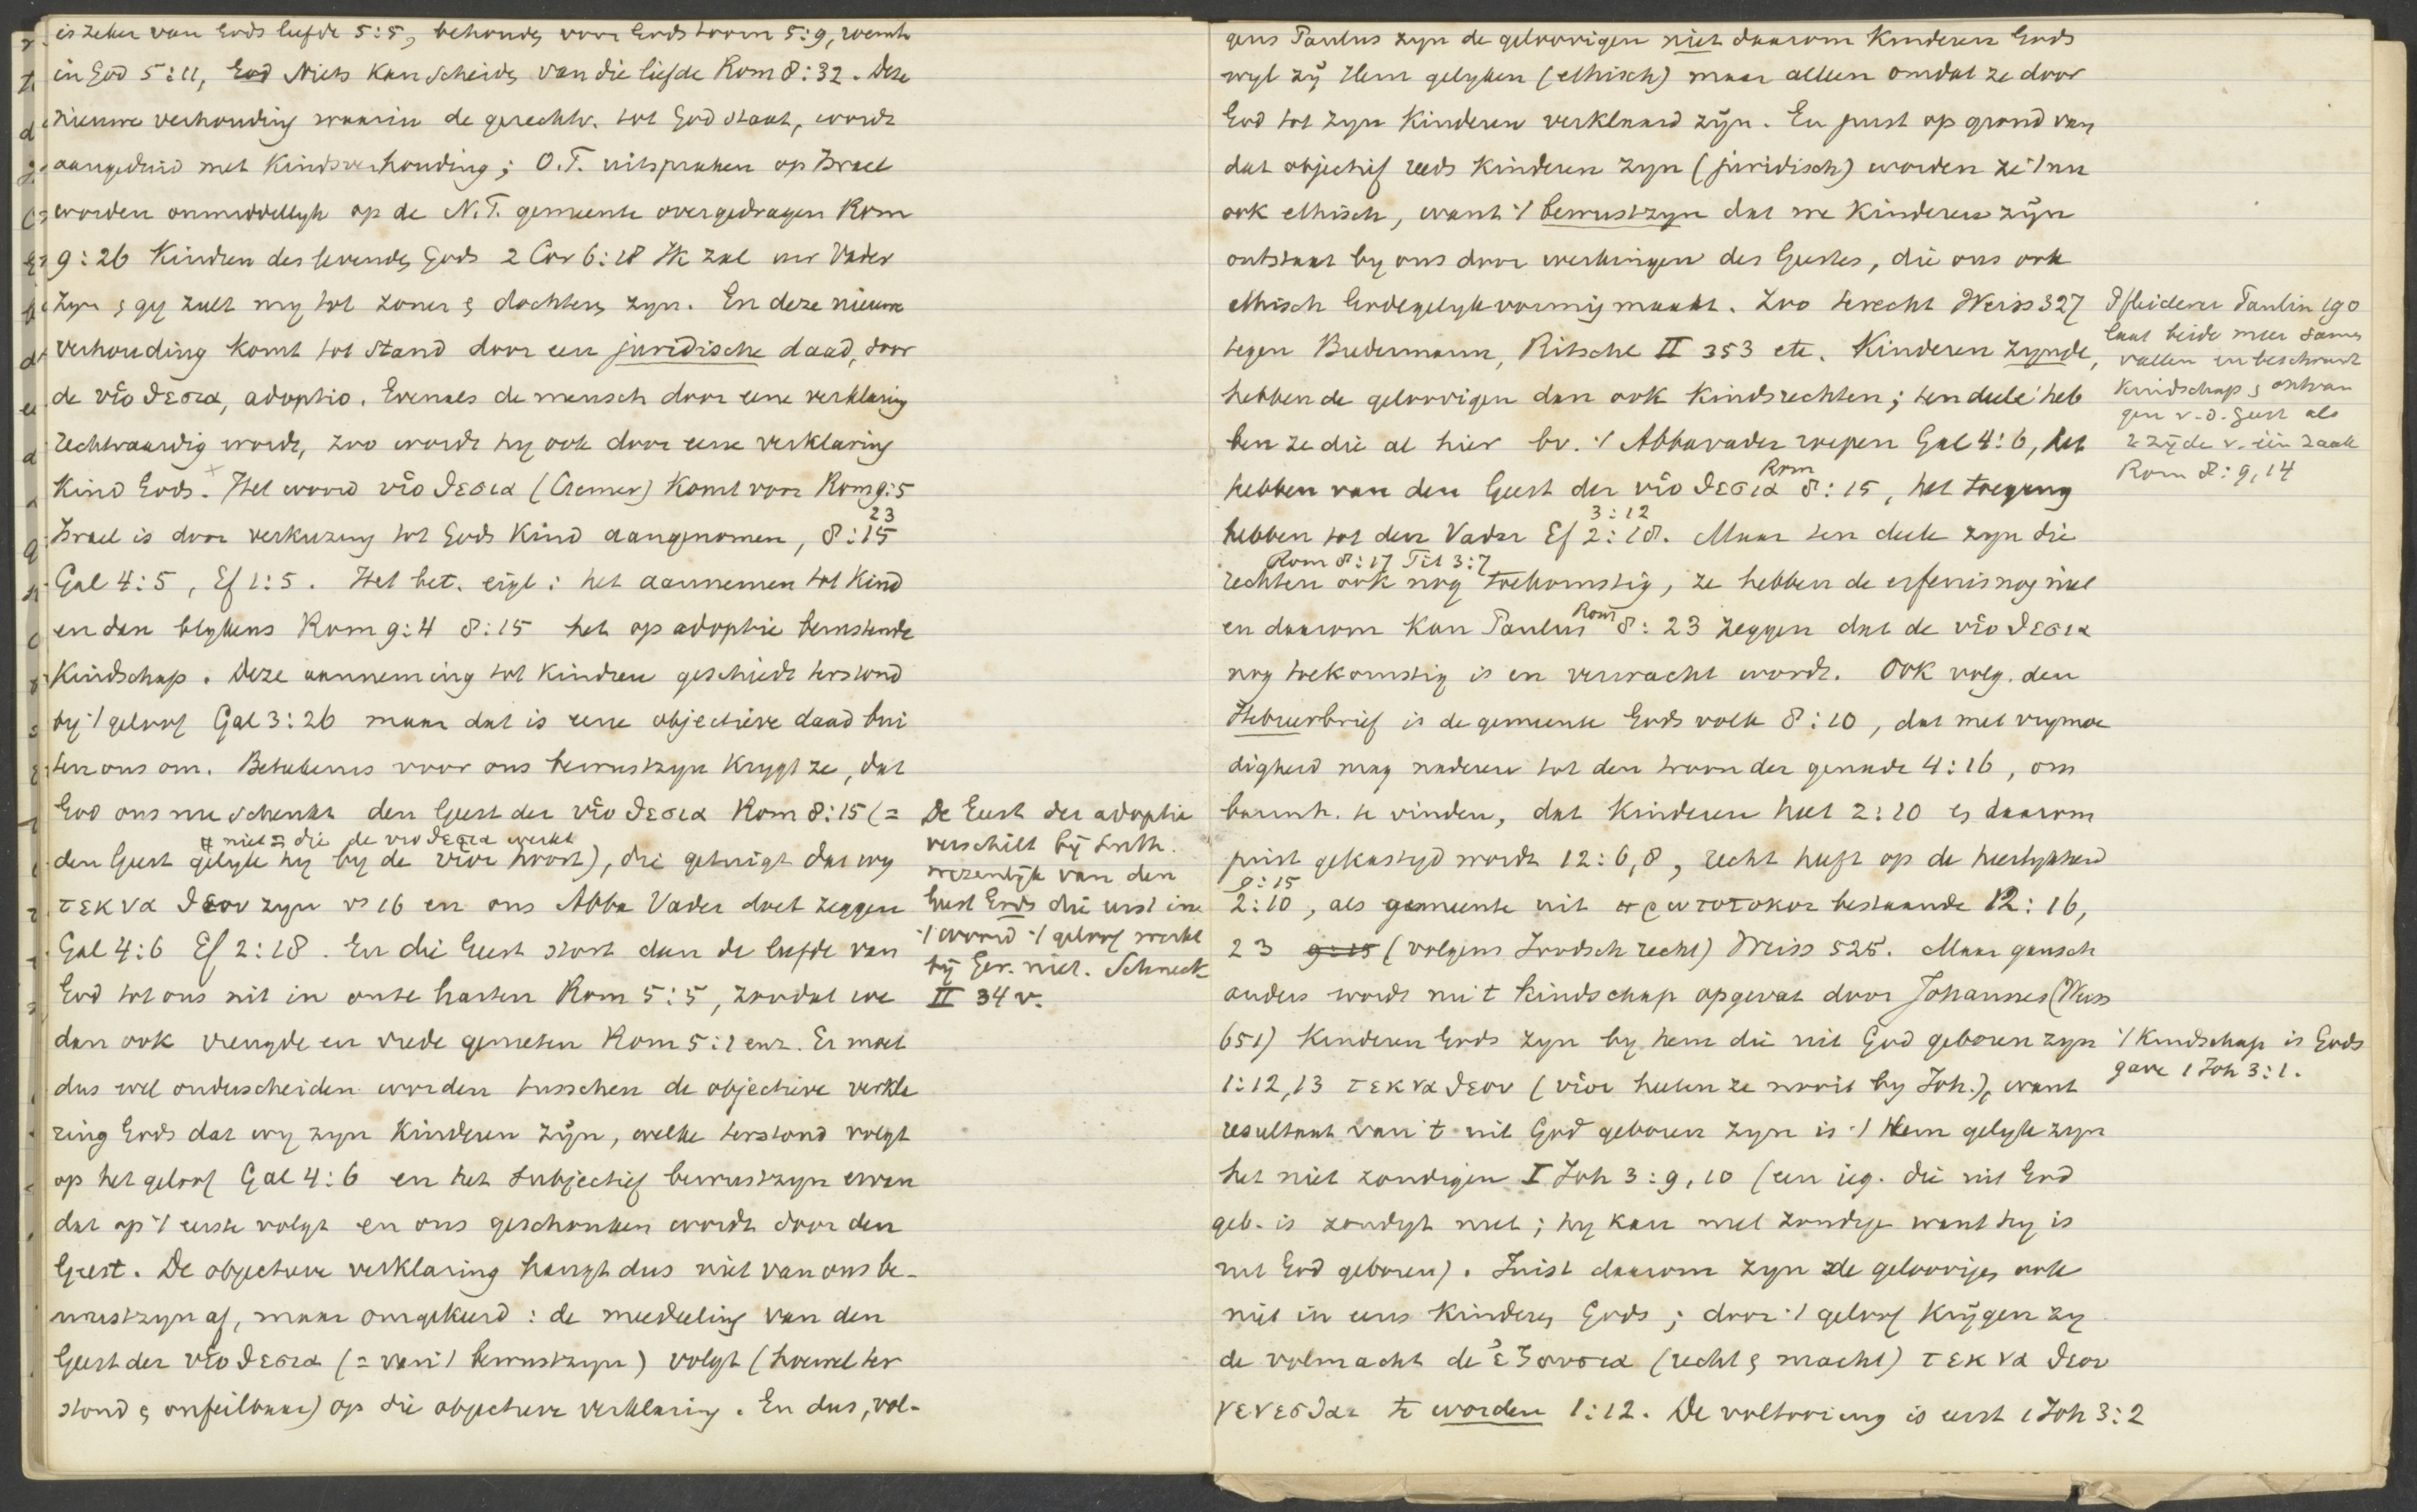 is zeker van Gods liefde 5:5, behouden voor Gods toorn 5:9, roemt
in God 5:11, God Niets kan scheiden van die liefde Rom 8:32. Deze
nieuwe verhouding waarin de gerechtv. tot God staat, wordt
aangeduid met Kindsverhouding; O.T. uitspraken op Israel
worden onmiddellyk op de N.T. gemeente overgedragen Rom
9:26 Kindren des levenden Gods 2 Cor 6:18 Ik zal uw Vader
zyn en gy zult my tot zonen en dochters zyn. En deze nieuwe
verhouding komt tot stand door een juridische daad, door
de υἱοθεσια, adoptio. Evenals de mensch door eene verklaring
rechtvaardig wordt, zoo wordt hy ook door eene verklaring
Kind Gods. Het woord υἱοθεσια (Cremer) komt voor Rom 9:5
Israel is door verkiezing tot Gods Kind aangenomen, 8:15 23
Gal 4:5, Ef 1:5. Het bet. eigl: het aannemen tot Kind
en dan blykens Rom 9:4 8:15 het op adoptie berustende
Kindschap. Deze aanneming tot Kindren geschiedt terstond
by 't geloof Gal 3:26 maar dat is eene objectieve daad bui
ten ons om. Beteekenis voor ons bewustzyn krygt ze, dat
God ons nu schenkt den Geest der υἱοθεσια Rom 8:15 (=
# niet = die de υιοθεσια werkt
den Geest gelyk hy by de υἱοι hoort), die getuigt dat wy
τεκνα θεου zyn vs 16 en ons Abba Vader doet zeggen
Gal 4:6 Ef 2:18. En die Geest stort dan de liefde van
God tot ons uit in onze harten Rom 5:5, zoodat we
dan ook vreugde en vrede genieten Rom 5:1 enz. Er moet
dus wel onderscheiden worden tusschen de objectieve verkla
ring Gods dat wy zyn Kinderen zÿn, welke terstond volgt
op het geloof Gal 4:6 en het subjectief bewustzyn ervan
dat op 't eerste volgt en ons geschonken wordt door den
Geest. De objectieve verklaring hangt dus niet van ons be-
wustzyn af, maar omgekeerd: de meedeeling van den
Geest der υἱοθεσια (= van 't bewustzyn) volgt (hoewel ter
stond en onfeilbaar) op die objectieve verklaring. En dus, vol-
De Geest der adoptie
verschilt bÿ Luth.
wezenlÿk van den
Geest Gods die eerst in
't woord 't geloof werkt
bÿ Ger. niet. Schneck
II 34 v.
gens Paulus zyn de geloovigen niet daarom Kinderen Gods
wyl zÿ Hem gelyken (ethisch) maar alleen omdat ze door
God tot zyn Kinderen verklaard zÿn. En juist op grond van
dat objectief reeds Kinderen zyn (juridisch) worden ze 't nu
ook ethisch, want 't bewustzyn dat we Kinderen zÿn
ontstaat by ons door werkingen des Geestes, die ons ook
ethisch Godegelykvormig maakt. Zoo terecht Weiss 327
tegen Biedermann, Ritschl II 353 etc. Kinderen zynde,
hebben de geloovigen dan ook Kindsrechten; ten deele heb
ben ze die al hier bv. 't Abbavader roepen Gal 4:6, het
hebben van den Geest der υἱοθεσια Rom 8:15, het toegang
hebben tot den Vader Ef 2:18. 3:12 Maar ten deele zyn die
Rom 8:17 Tit 3:7
rechten ook nog toekomstig, ze hebben de erfenis nog niet
en daarom kan Paulus Rom 8:23 zeggen dat de υἱοθεσια
nog toekomstig is en verwacht wordt. Ook volg. den
Hebreerbrief is de gemeente Gods volk 8:10, dat met vrymoe
digheid mag naderen tot den troon der genade 4:16, om
barmh. te vinden, dat Kinderen heet 2:10 en daarom
juist gekastyd wordt 12:6,8, recht heeft op de heerlykheid
9:15
2:10, als gemeente uit πρωτοτοκοι bestaande 12:16,
23 9:15 (volgens Joodsch recht) Weiss 525. Maar gansch
anders wordt nu 't kindschap opgevat door Johannes (Weiss
651) Kinderen Gods zyn by hem die uit God geboren zyn
1:12,13 τεκνα θεου (υἱοι heeten ze nooit by Joh.), want
resultaat van 't uit God geboren zyn is 't Hem gelyk zyn
het niet zondigen I Joh 3:9,10 (een ieg. die uit God
geb. is zondigt niet; hy kan niet zondigen want hy is
uit God geboren). Juist daarom zyn de geloovigen ook
niet in eens Kinderen Gods; door 't geloof krÿgen zy
de volmacht de ἐξουσια (recht en macht) τεκνα θεου
γενεσθαι te worden 1:12. De voltooiing is eerst 1 Joh 3:2
Pfleiderer Paulin 190
laat beide meer samen
vallen en beschouwt
Kindschap en ontvan
gen v.d. Geest als
2 zÿde v. één zaak
Rom 8:9,14
't Kindschap is Gods
gave 1 Joh 3:1.